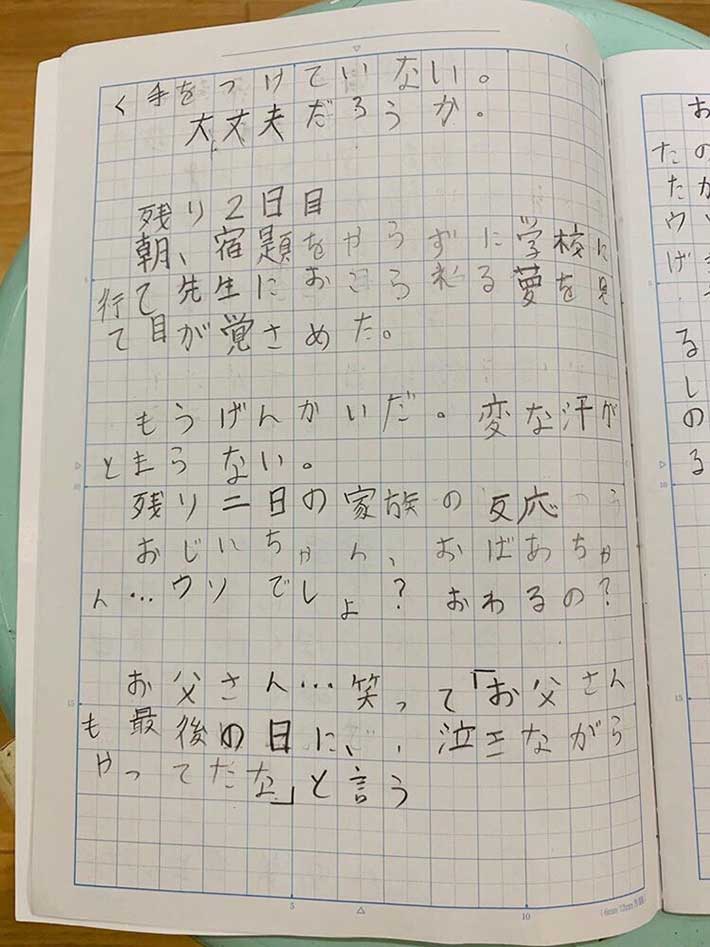 く手をつけていない。
大丈夫だろうか。
残り2日目
朝、宿題をやらずに学校に
行て先生におこられる夢を見
て目が覚さめた。
もうげんかいだ。変な汗が
とまらない。
残り二日の家族の反応
おじいちゃん、おばあちゃ
ん…ウソでしょ?おわるの?
お父さん…笑って「お父さん
も最後の日に、、泣きながら
やってたな」と言う
お
たの
たか
ウい
げ
る
しの
る
5
10
15
5
10
15